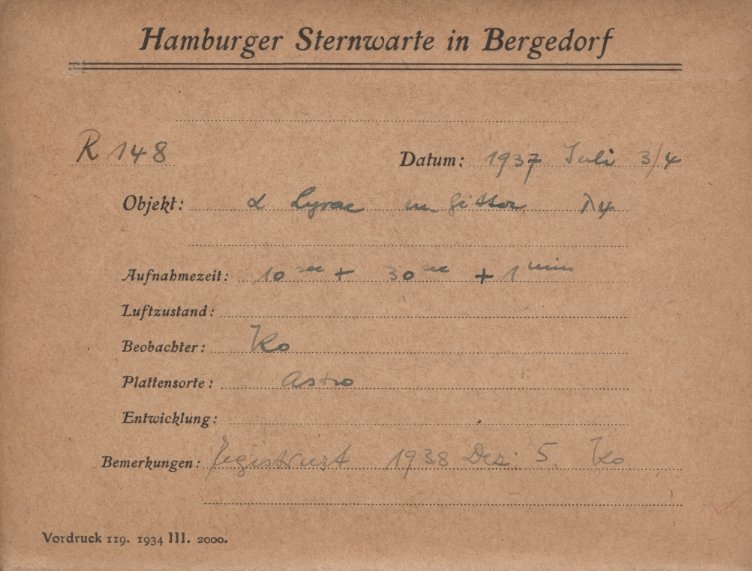 Hamburger Sternwarte in Bergedorf
R 148 Datum: 1937 Juli 3/4
Objekt: α Lyrae m Gitter
Aufnahmezeit: 10 sec + 30 sec + 1 min
Luftzustand:
Beobachter: Ko
Plattensorte: Astro
Entwicklung:
Bemerkungen: registriert 1938 Dez. 5. Ko
Vordruck 119. 1934 III. 2000.